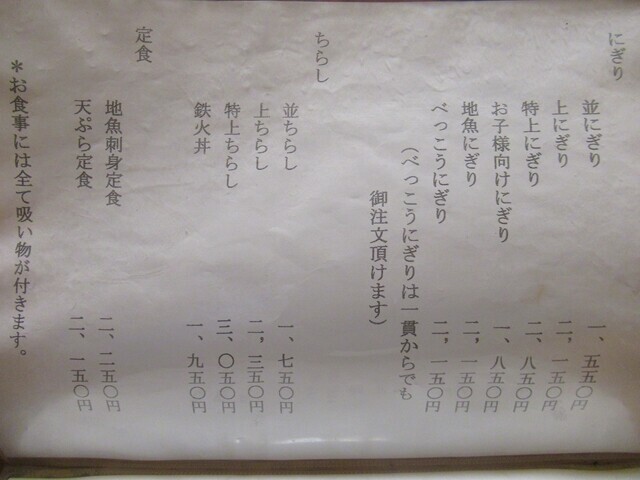 にぎり
並にぎり 一、五五〇円
上にぎり 二、一五〇円
特上にぎり 二、八五〇円
お子様向けにぎり 一、八五〇円
地魚にぎり 二、一五〇円
べっこうにぎり 二、一五〇円
（べっこうにぎりは一貫からでも
御注文頂けます）
ちらし
並ちらし 一、七五〇円
上ちらし 二、三五〇円
特上ちらし 三、〇五〇円
鉄火丼 一、九五〇円
定食
地魚刺身定食 二、二五〇円
天ぷら定食 二、一五〇円
＊お食事には全て吸い物が付きます。